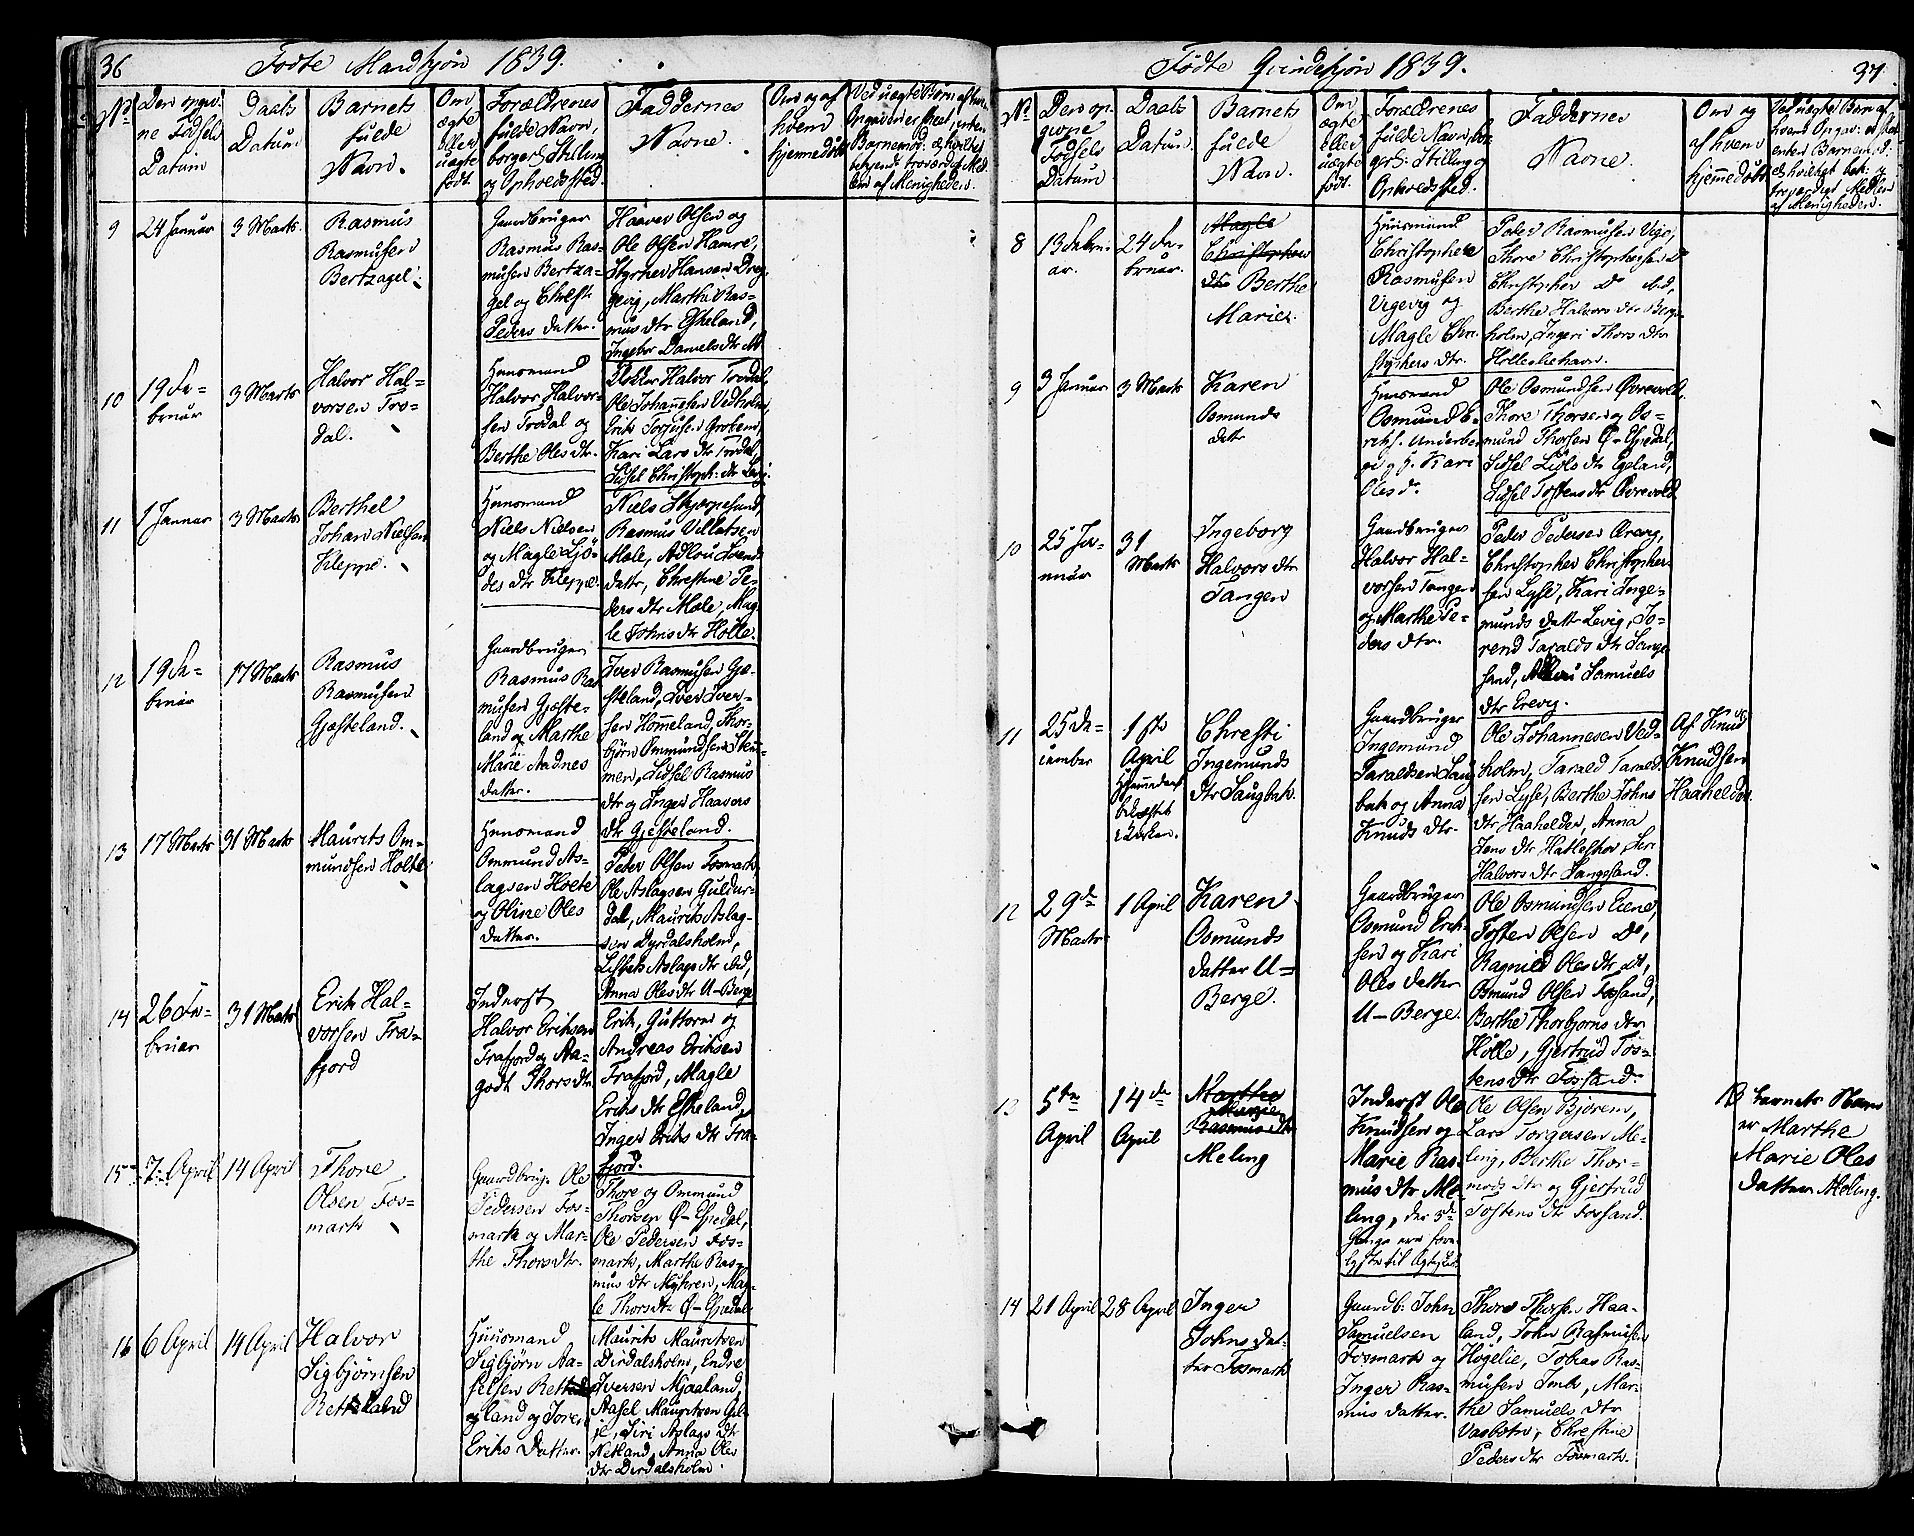 36
Fødte Mandkjøn 1839.
No
Den opgiv:
ne Fødsels
Datum
Daabs
Datum
Barnets
fulde
Navn.
Om
ægte
eller
uægte
født.
Forældrenes
fulde Navn,
borgerl: Stilling
og Opholdssted.
Faddernes
Navne.
Om og af
hvem
hjemmedøbt
9
24 Januar
3 Marts
Rasmus
Rasmusen
Bertzagel.
Gaardbruger
Rasmus Ras-
musen Bertza-
gel og Christi
Peders datter.
Haaver Olsen og
Ole Olsen Hamre,
Hansen
Marthe Ras-
mus dtr Eskeland,
Ingebor Daniels dtr
10
19 Fe-
bruar
3 Marts
Halvor Hal-
vorsen Fro-
dal.
Huusmand
Halvor Halvor-
sen Frodal og
Berthe Oles dtr.
Halvor Frodal,
Ole Johannesen Vedholm,
Kari Lars dtr Frodal,
Sidsel Christoph: dtr
11
1 Januar
3 Marts
Berthel
Johan Nielsen
Kleppe.
Huusmand
Niels Nielsen
og Magle Ljö-
des dtr Kleppe.
Niels
Rasmus Villatsen
Mæle,
datter, Christine Pe-
ders dtr Mæle, Mag-
le Johns dtr Holle.
12
19 Fe-
bruar
17 Marts
Rasmus
Rasmusen
Gjesteland.
Gaardbruger
Rasmus Ras
musen Gjeste-
land og Marthe
Marie Aadnes
datter.
Iver Rasmusen Gje-
steland, Iver Iver-
sen Hommeland, Thor-
björn Ommundsen
Sidsel Rasmus
dtr og Inger Haavors
dtr Gjesteland.
13
17 Marts
31 Marts
Maurits Om-
mundsen Holte
Huusmand
Ommund As-
lagsen Hoete
og Oline Oles
datter.
Peter Olsen Fosmark,
Ole Aslagsen
Maurits Aslag-
sen Dyrdalsholm,
Lisbet Aslags dtr ibid,
Anna Oles dtr U-Berge
14
26 Fe-
bruar
31 Marts
Erik Hal-
vorsen Fra-
fjord
Inderst
Halvor Eriksen
Frafjord og Aa-
godt Thors dtr
Erik, Guttorm og
Andreas Eriksen
Frafjord, Magle
Eriks dtr Eskeland,
Inger Eriks dtr Fra-
fjord.
15
7 April
14 April
Thore
Olsen Fos-
mark
Gaardbrug. Ole
Pedersen Fos-
mark og Mar-
the Thors dtr.
Thore og Ommund
Thorsen Ø-Espedal,
Ole Pedersen Fos-
mark, Marthe Ras-
mus dtr Myhren, Mag-
le Thors dtr Ø-Espedal
16
6 April
14 April
Halvor
Sigbjørnsen
Retteland
Huusmand
Sigbjörn Aa-
selsen
land og
Eriks Datter.
Maurits Mauritsen
Dirdalsholm, Endre
Iversen Mjaaland,
Aasel Mauritsen Gil-
je, Siri Aslags Dtr
Netland, Anna Oles
dtr Dirdalsholm.
Fødte Qvindekjøn 1839.
37
No
Den op-
givne
Fødsels
Datum
Daabs
Datum.
Barnets
fulde
Navn.
Om
ægte
eller
uægte
født.
Forældrenes
fulde Navn, bor-
gerl: Stilling og
Opholdssted.
Faddernes
Navne.
Om og
af hvem
hjemmedøbt
8
13 Febru-
ar.
24 Fe-
bruar.
Magle
Christopher
dtr Berthe
Marie.
Huusmand
Christopher
Rasmusen
Vigevig og
Magle Chri-
stophers dtr.
Peder Rasmusen
Thore Christophersen Do
Christopher Do ibid,
Berthe Halvors dtr Berge-
holm, Ingeri Thors dtr
9
3 Januar
3 Marts
Karen
Osmunds
datter
Huusmand
Osmund E-
riks. Underber-
ge og H. Kari
Oles d.
Ole Osmundsen Øvrevold,
Thore Thorsen og Os-
mund Thorsen Ø-Espedal,
Sidsel Eigeland,
Sidsel Tostens dtr Øvrevold
10
25 Ja-
nuar
31
Marts
Ingeborg
Halvors dtr
Tangen
Gaardbruger
Halvor Hal-
vorsen Tangen
og Marthe Pe-
ders dtr.
Peder Pedersen
Christopher Christopher-
sen Lyse, Kari Inge-
munds datter Levig, To-
rend Taralds dtr Sange-
sand, Samuels
dtr
11
25 De-
cember
1ste
April
Hjemmedaab
bekræftet
i Kirken.
Christi
Ingemunds
dtr Saugbak.
Gaardbruger
Ingemund
Taraldsen Saug
bak og Anna
Knuds dtr.
Ole Johannesen Ved-
holm, Tarald Tarald-
sen Lyse, Berthe Johns
dtr Haahelder, Anna
Jens dtr Hatleskov, Siri
Halvors dtr Sangesand.
Af Knud
Knudsen
Haahelder.
12
29de
Marts
1 April
Karen
Osmunds
datter U-
Berge.
Gaardbruger
Osmund Erik-
sen og Kari
Oles datter
U-Berge.
Ole Osmundsen Eiene,
Tosten Olsen Do,
Ragnild Oles dtr do,
Osmund Olsen Fossand,
Berthe Thorbjørns dtr
Holle, Gjertrud Tos-
tens dtr Fossand.
13
5te
April
14de
April
Marthe
Marie
Rasmus dtr
Meling
Inderst Ole
Knudsen og
Marie Ras-
mus dtr Me-
ling,
Ole Olsen Bjørem,
Lars Torgersen Me-
ling, Berthe Thor-
mods dtr og Gjertrud
Tostens dtr Fossand.
Barnets Navn
er Marthe
Marie Oles
datter Meling.
14
21 April
28 April
Inger
Johns dat-
ter Fosmark
Gaardb: John
Samuelsen
Fosmark og
Inger Ras-
mus datter.
Thore Thorsen Haa-
land, John Rasmusen
Høgelie, Tobias Ras-
musen Mar-
the Samuels dtr
Christine
Peders dtr Fosmark.